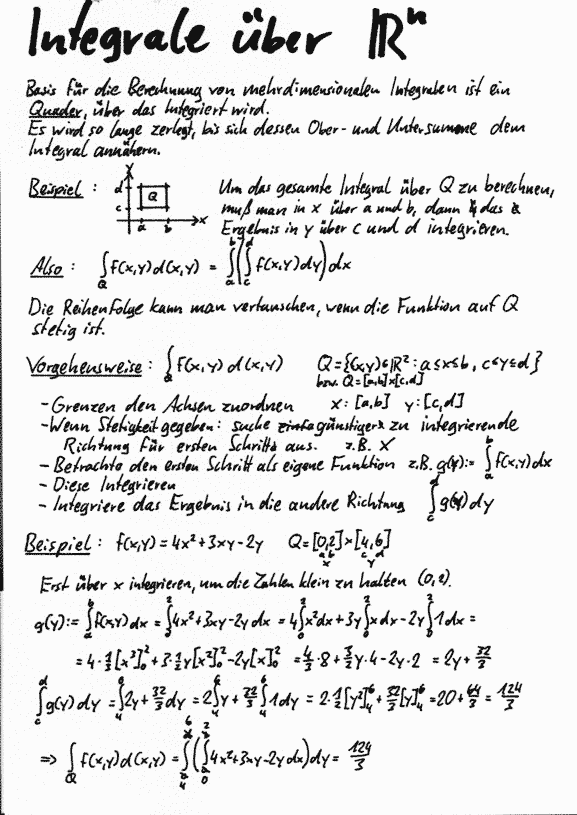 Integrale über ℝⁿ
Basis für die Berechnung von mehrdimensionalen Integralen ist ein
Quader, über das Integriert wird.
Es wird so lange zerlegt, bis sich dessen Ober- und Untersumme dem
Integral annähern.
Beispiel :
y
d
c
Q
a b
x
Um das gesamte Integral über Q zu berechnen,
muß man in x über a und b, dann das
Ergebnis in y über c und d integrieren.
Also : ∫_Q f(x,y)d(x,y) = ∫_a^b(∫_c^d f(x,y)dy)dx
Die Reihenfolge kann man vertauschen, wenn die Funktion auf Q
stetig ist.
Vorgehensweise : ∫_Q f(x,y) d(x,y) Q={(x,y)∈ℝ²: a≤x≤b, c≤y≤d}
bzw. Q=[a,b]×[c,d]
- Grenzen den Achsen zuordnen x: [a,b] y: [c,d]
- Wenn Stetigkeit gegeben: suche günstiger zu integrierende
Richtung für ersten Schritt aus. z.B. x
- Betrachte den ersten Schritt als eigene Funktion z.B. g(y):= ∫_a^b f(x,y)dx
- Diese Integrieren
- Integriere das Ergebnis in die andere Richtung ∫_c^d g(y)dy
Beispiel : f(x,y)=4x²+3xy-2y Q=[0,2]×[4,6]
a b c d
x y
Erst über x integrieren, um die Zahlen klein zu halten (0,2).
g(y):= ∫_a^b f(x,y) dx = ∫_0^2 4x²+3xy-2y dx = 4∫_0^2 x²dx+3y∫_0^2 x dx-2y∫_0^2 1 dx =
= 4·1/3[x³]_0^2+3·1/2y[x²]_0^2-2y[x]_0^2 = 4/3·8+3/2y·4-2y·2 = 2y+32/3
∫_c^d g(y) dy = ∫_4^6 2y+32/3 dy = 2∫_4^6 y+32/3∫_4^6 1dy = 2·1/2[y²]_4^6+32/3[y]_4^6=20+64/3=124/3
⇒ ∫_Q f(x,y)d(x,y) = ∫_4^6(∫_0^2 4x²+3xy-2y dx)dy = 124/3